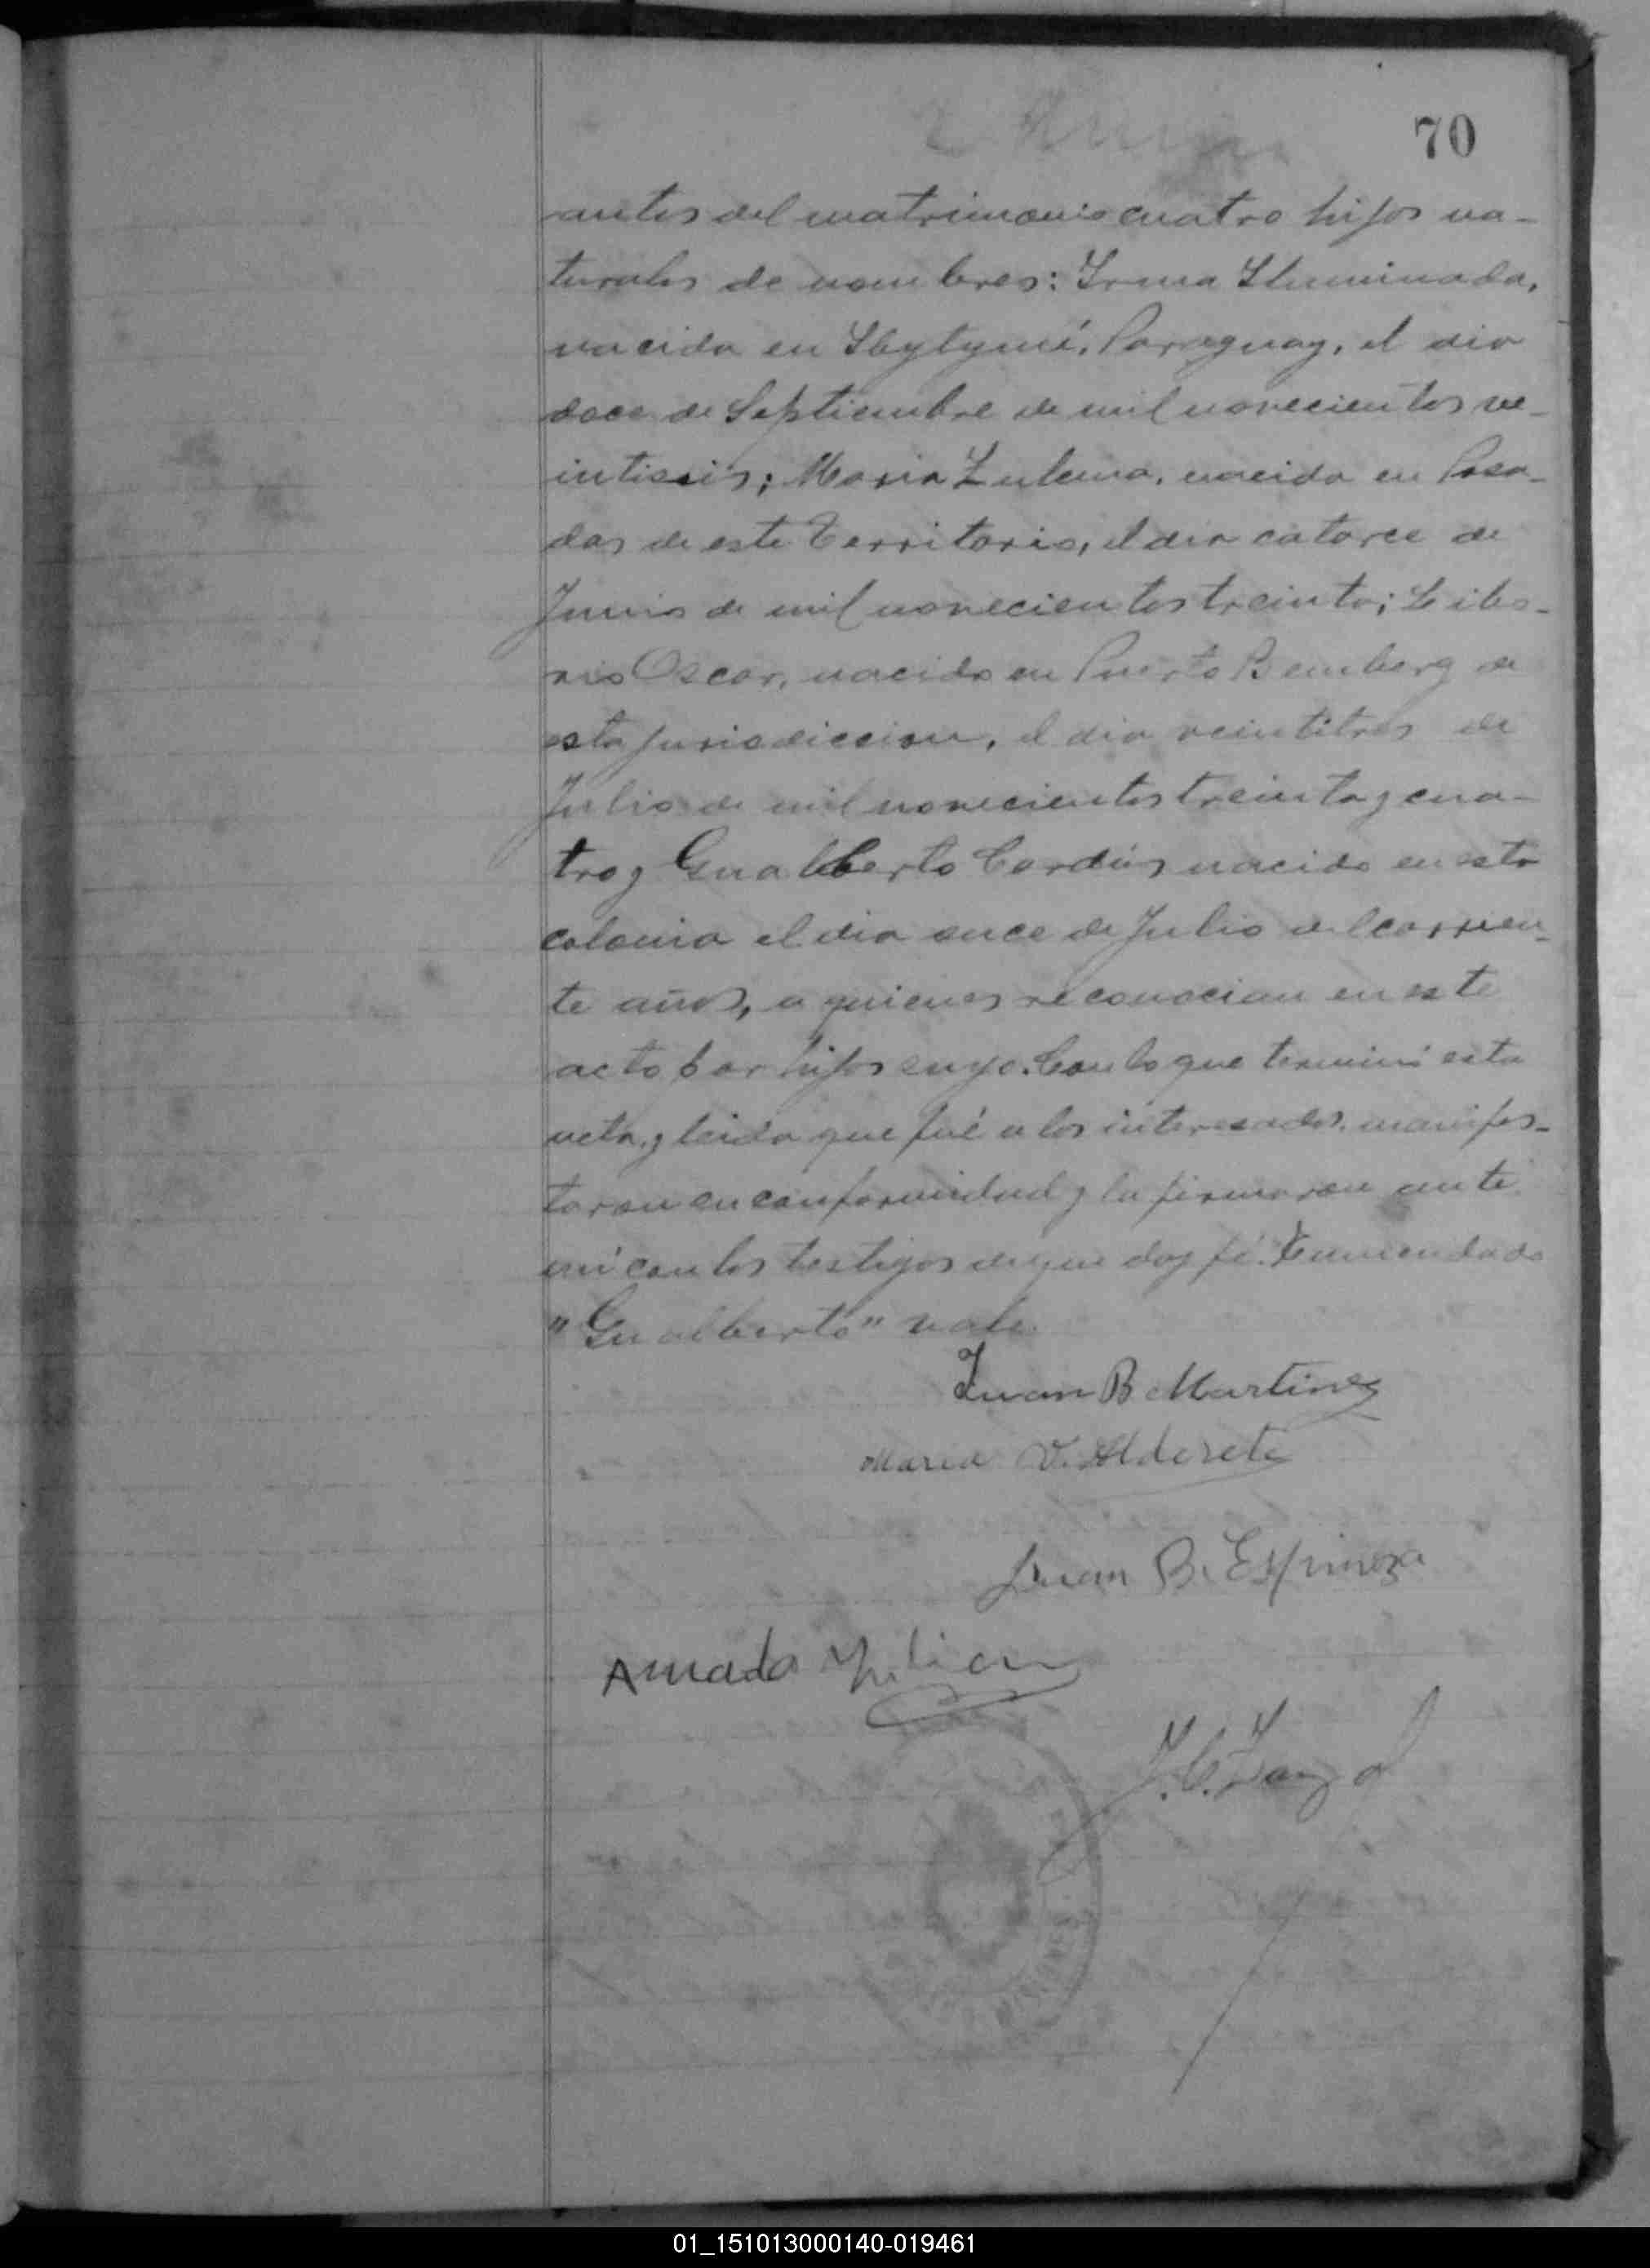 70
antes del matrimonio cuatro hijos na-
turales de nombres: Irma Iluminada,
nacida en Ybytymí, Paraguay, el dia
doce de Septiembre de mil novecientos ve-
intiseis; Maria Zulema, nacida en Posa-
das de este Territorio, el dia catorce de
Junio de mil novecientos treinta; Libo-
rio Oscar, nacido en Puerto Bemberg de
esta jurisdiccion, el dia veintitres de
Julio de mil novecientos treinta y cua-
tro y Gualberto Cardús nacido en esta
colonia el dia once de Julio del corrien-
te años, a quienes reconocian en este
acto por hijos suyo. Con lo que terminó esta
acta, y leida que fué a los interesados, manifes-
taron su conformidad y la firmaron ante
mí con los testigos de que doy fé. Enmendado
"Gualberto" vale.
Juan B Martinez
Maria V. Alderete
Juan B. Espinoza
Amado Julian
J. C.
MISIONES
01_151013000140-019461